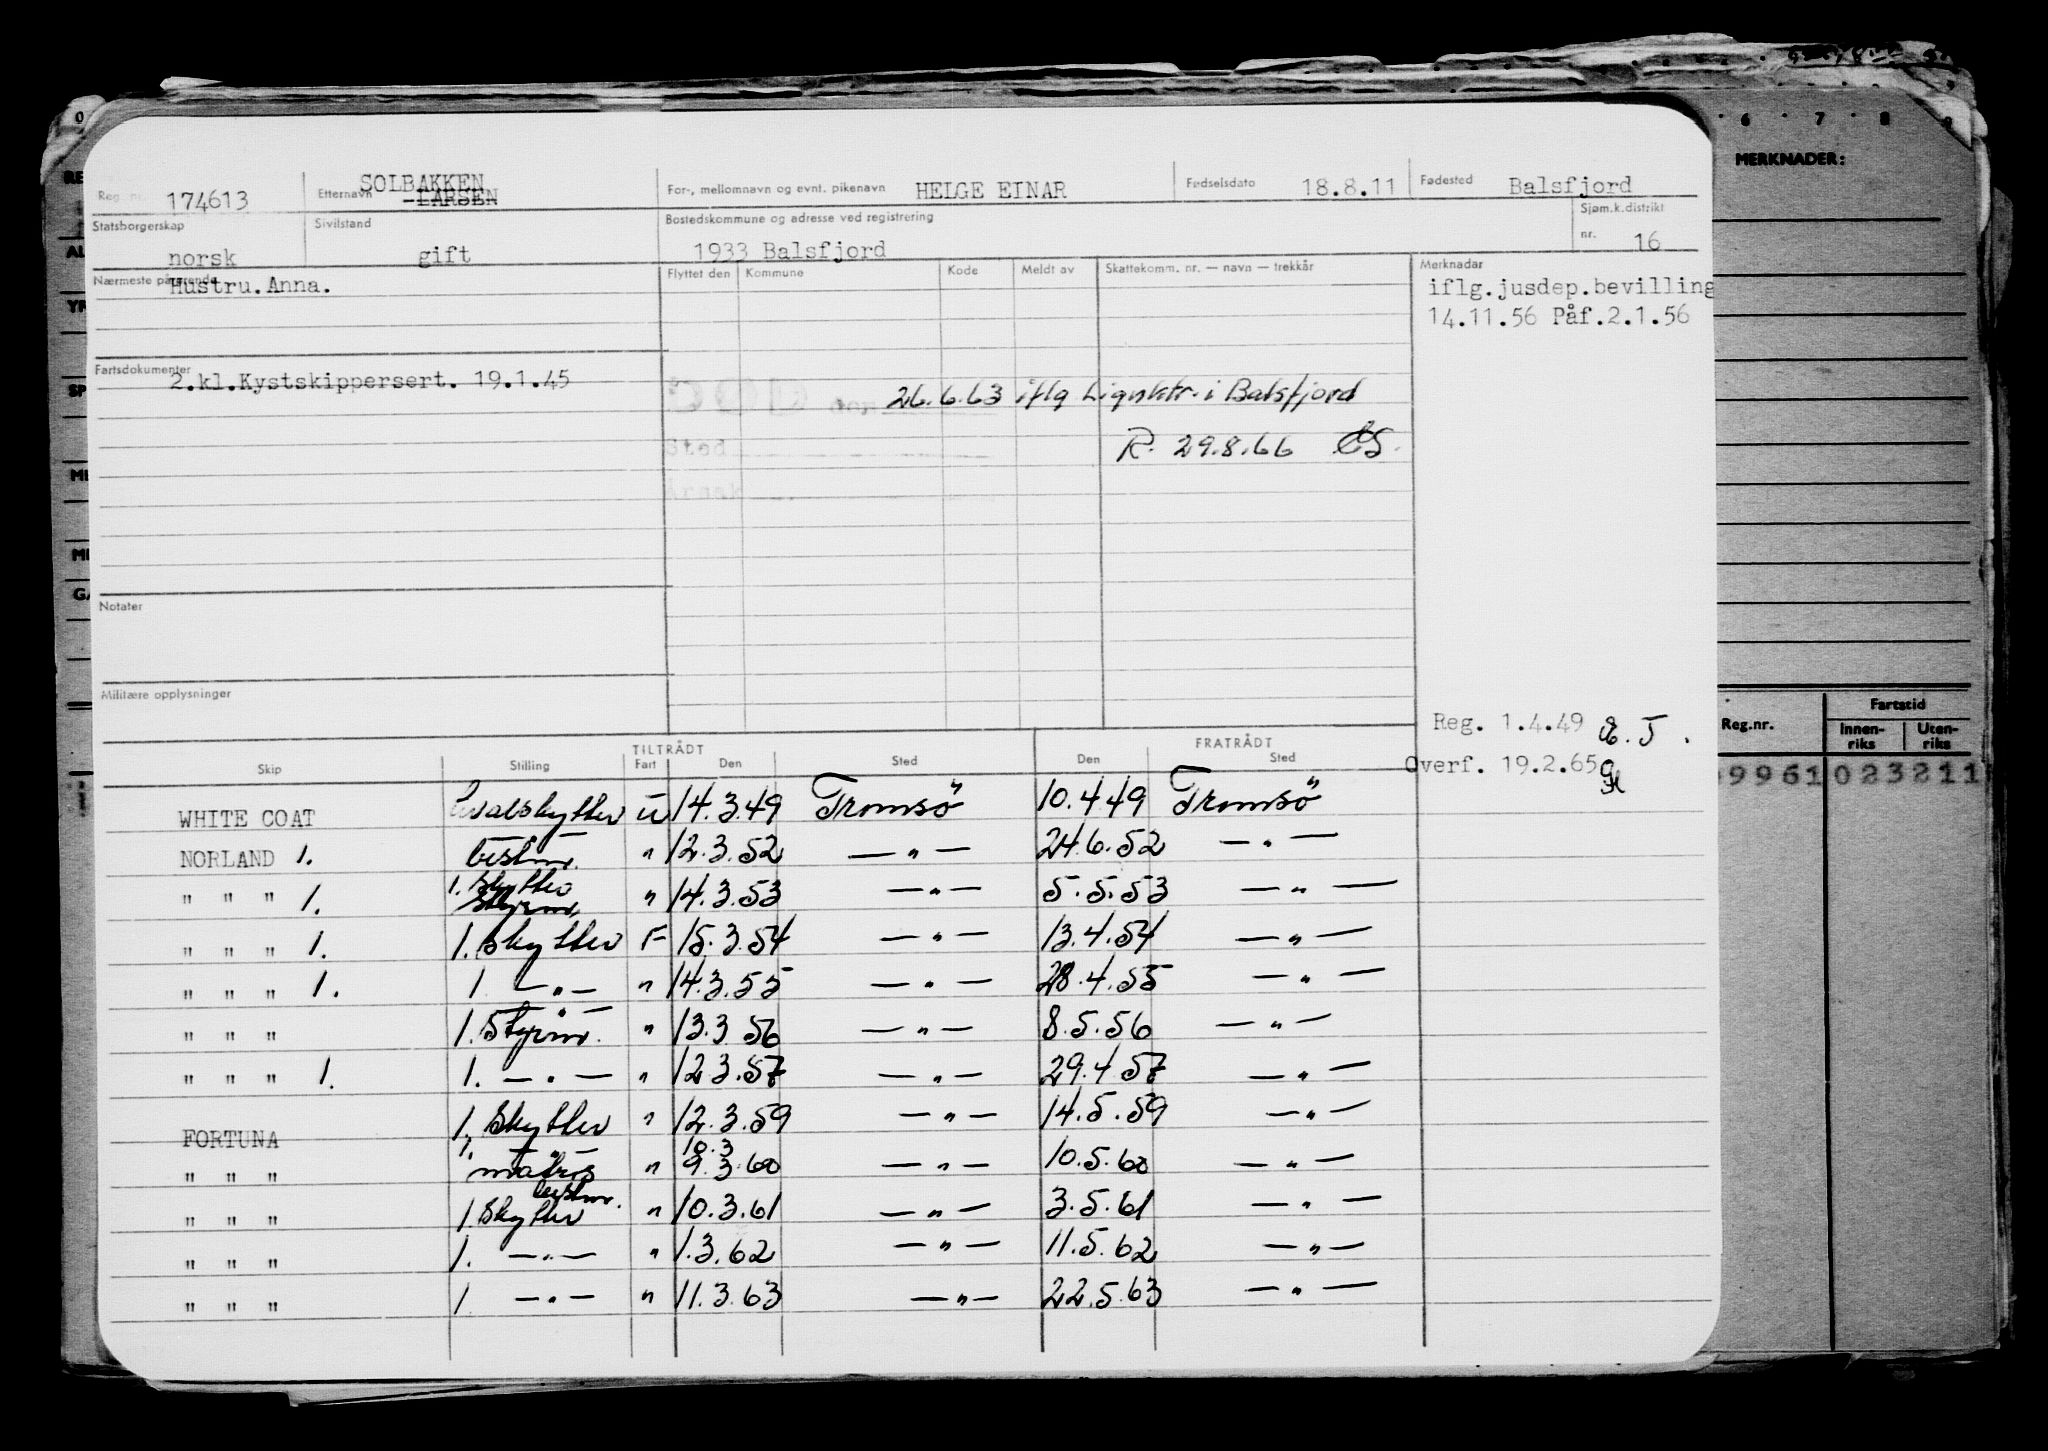 6 7 8 9
MERKNADER:
Reg. nr. 174613 Etternavn SOLBAKKEN For-, mellomnavn og evnt. pikenavn HELGE EINAR Fødselsdato 18.8.11 Fødested Balsfjord
-LARSEN
Statsborgerskap Sivilstand Bostedskommune og adresse ved registrering Sjøm.k.distrikt
norsk gift 1933 Balsfjord nr. 16
Nærmeste pårørende Flyttet den Kommune Kode Meldt av Skattekomm. nr. — navn — trekkår Merknadar
Hustru.Anna. iflg.jusdep.bevilling
14.11.56 Påf.2.1.56
Fartsdokumenter
2.kl.Kystskippersert. 19.1.45 26.6.63 iflg Lignktr. i Balsfjord
Sted R. 29.8.66
Notater
Militære opplysninger
Reg. 1.4.49 E. J.
Overf. 19.2.65
Reg.nr. Fartstid
Innen-riks Uten-riks
9961 023211
TILTRÅDT FRATRÅDT
Skip Stilling Fart Den Sted Den Sted
WHITE COAT u 14.3.49 Tromsö 10.4.49 Tromsö
NORLAND 1. bestm. " 12.3.52 — " — 24.6.52 — " —
" " " 1. 1. Skytter Styrm. " 14.3.53 — " — 5.5.53 — " —
" " " 1. 1. Skytter F 15.3.54 — " — 13.4.54 — " —
" " " 1. 1 — " — " 14.3.55 — " — 28.4.55 — " —
" " " 1. Styrm. " 13.3 56 — " — 8.5.56 — " —
" " " 1. 1. — " — " 12.3.57 — " — 29.4.57 — " —
FORTUNA 1. Skytter " 12.3.59 — " — 14.5.59 — " —
10.3
" " " matros " 9.3.60 — " — 10.5.60 — " —
bestm.
" " " 1 Skytter " 10.3.61 — " — 3.5.61 — " —
" " " 1. — " — " 1.3.62 — " — 11.5.62 — " —
" " " 1 — " — " 11.3.63 — " — 22.5.63 — " —